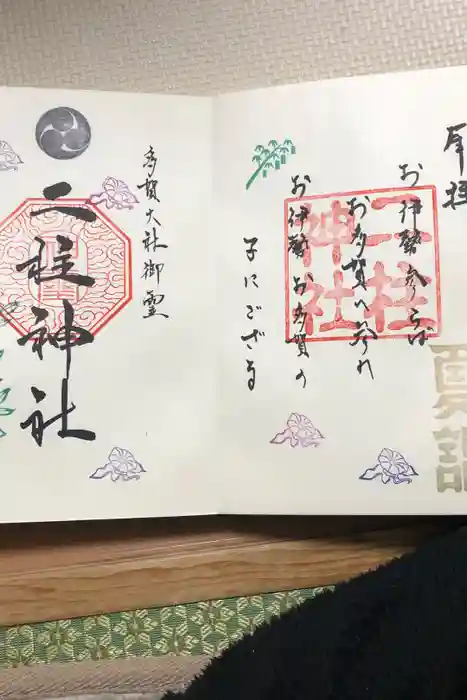 奉拝
お伊勢参らば
お多賀へ参れ
お伊勢お多賀の
子にござる
二柱
神社
夏詣
多賀大社御霊
二柱神社